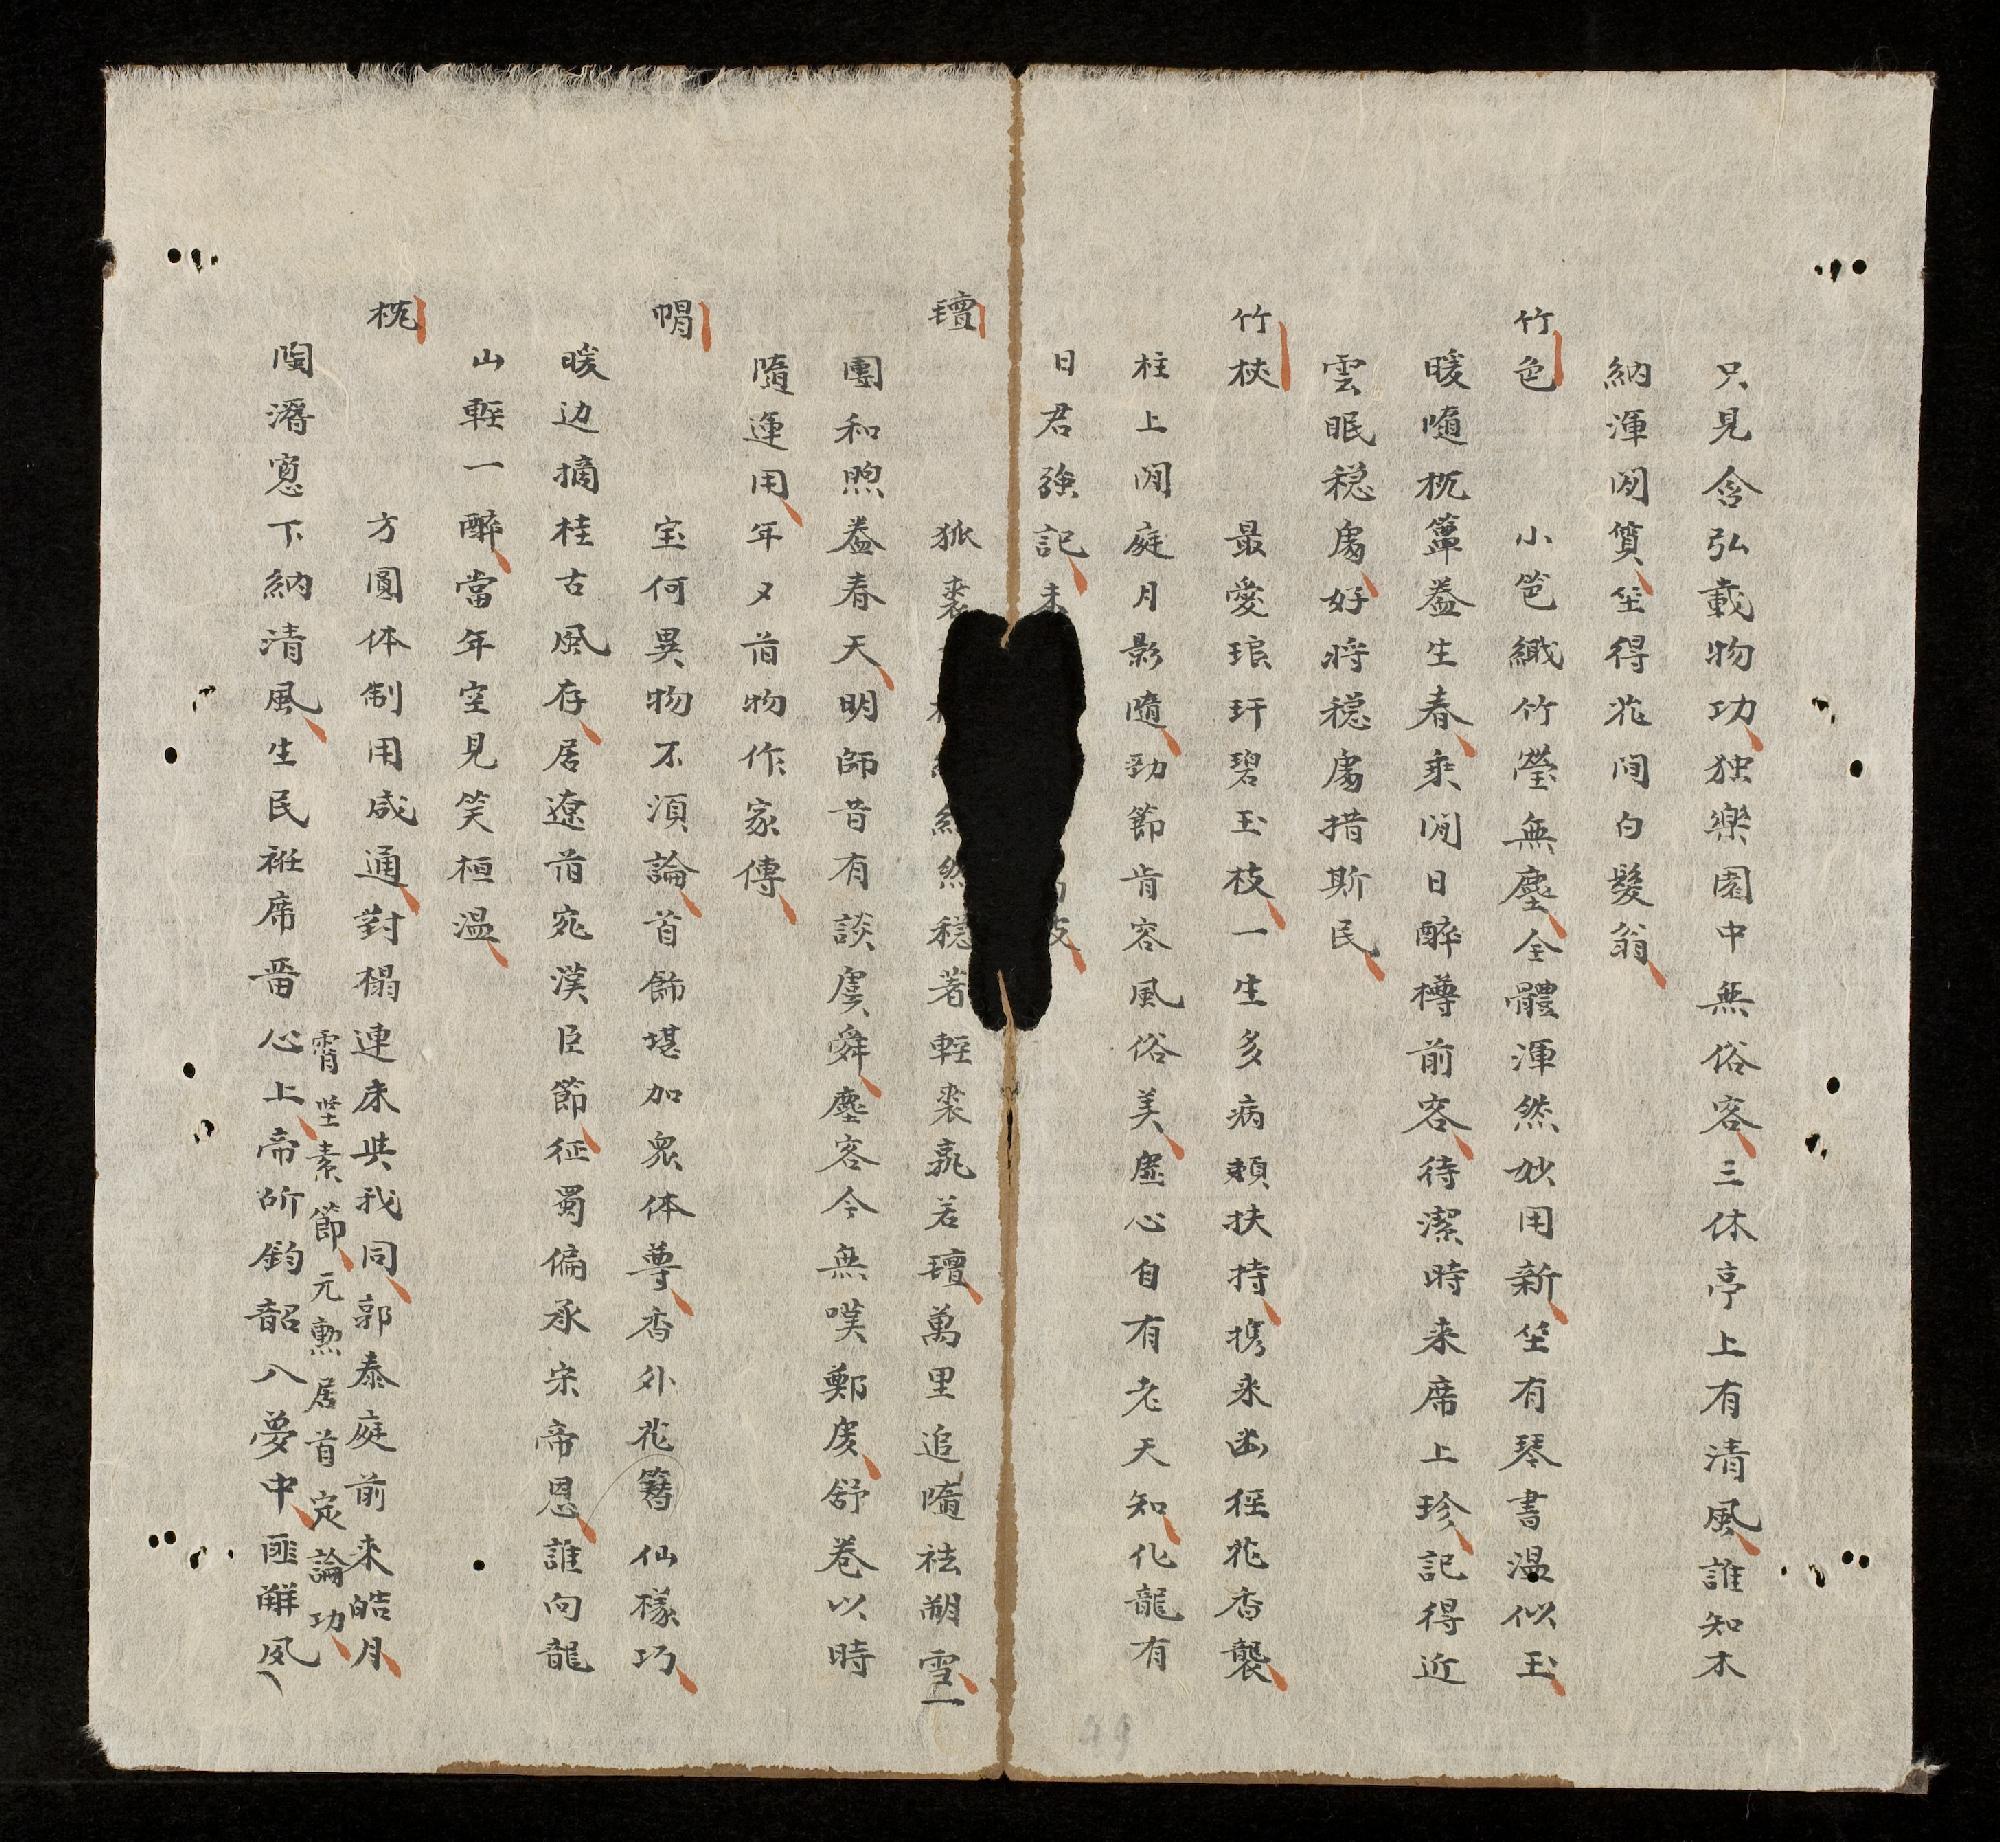 只見含弘載物功独樂園中無俗客三休亭上有清風誰知木
納渾閒質坐得花間白髮翁
竹色　小笆織竹瑩無塵全體渾然妙用新坐有琴書温似玉
暖随枕簟盎生春乘閒日醉樽前客待潔時来席上珍記得近
雲眠穏處好將穏處措斯民
竹杖　最愛琅玕碧玉枝一生多病頼扶持携来幽徑花香襲
柱上閒庭月影隨勁節肯容風俗美虛心自有老天知化龍有
日君強記未
氊　狐裘　然穏著輕裘孰若氊萬里追隨祛朔雪一
團和煦盎春天明師昔有談虞舜塵客今無嘆鄭虔舒卷以時
隨運用年又首物作家傳
帽　宝何異物不湏論首飾堪加衆体尊香外花簪仙樣巧
暖边摘桂古風存居遼首宛漢臣節征蜀偏承宋帝恩誰向龍
山輕一醉當年空見笑桓温
枕　方圓体制用咸通對榻連床共我同郭泰庭前来皓月
霄坐素節元勲居首定論功
陶潛窓下納清風生民袵席畱心上帝所鈞韶入夢中